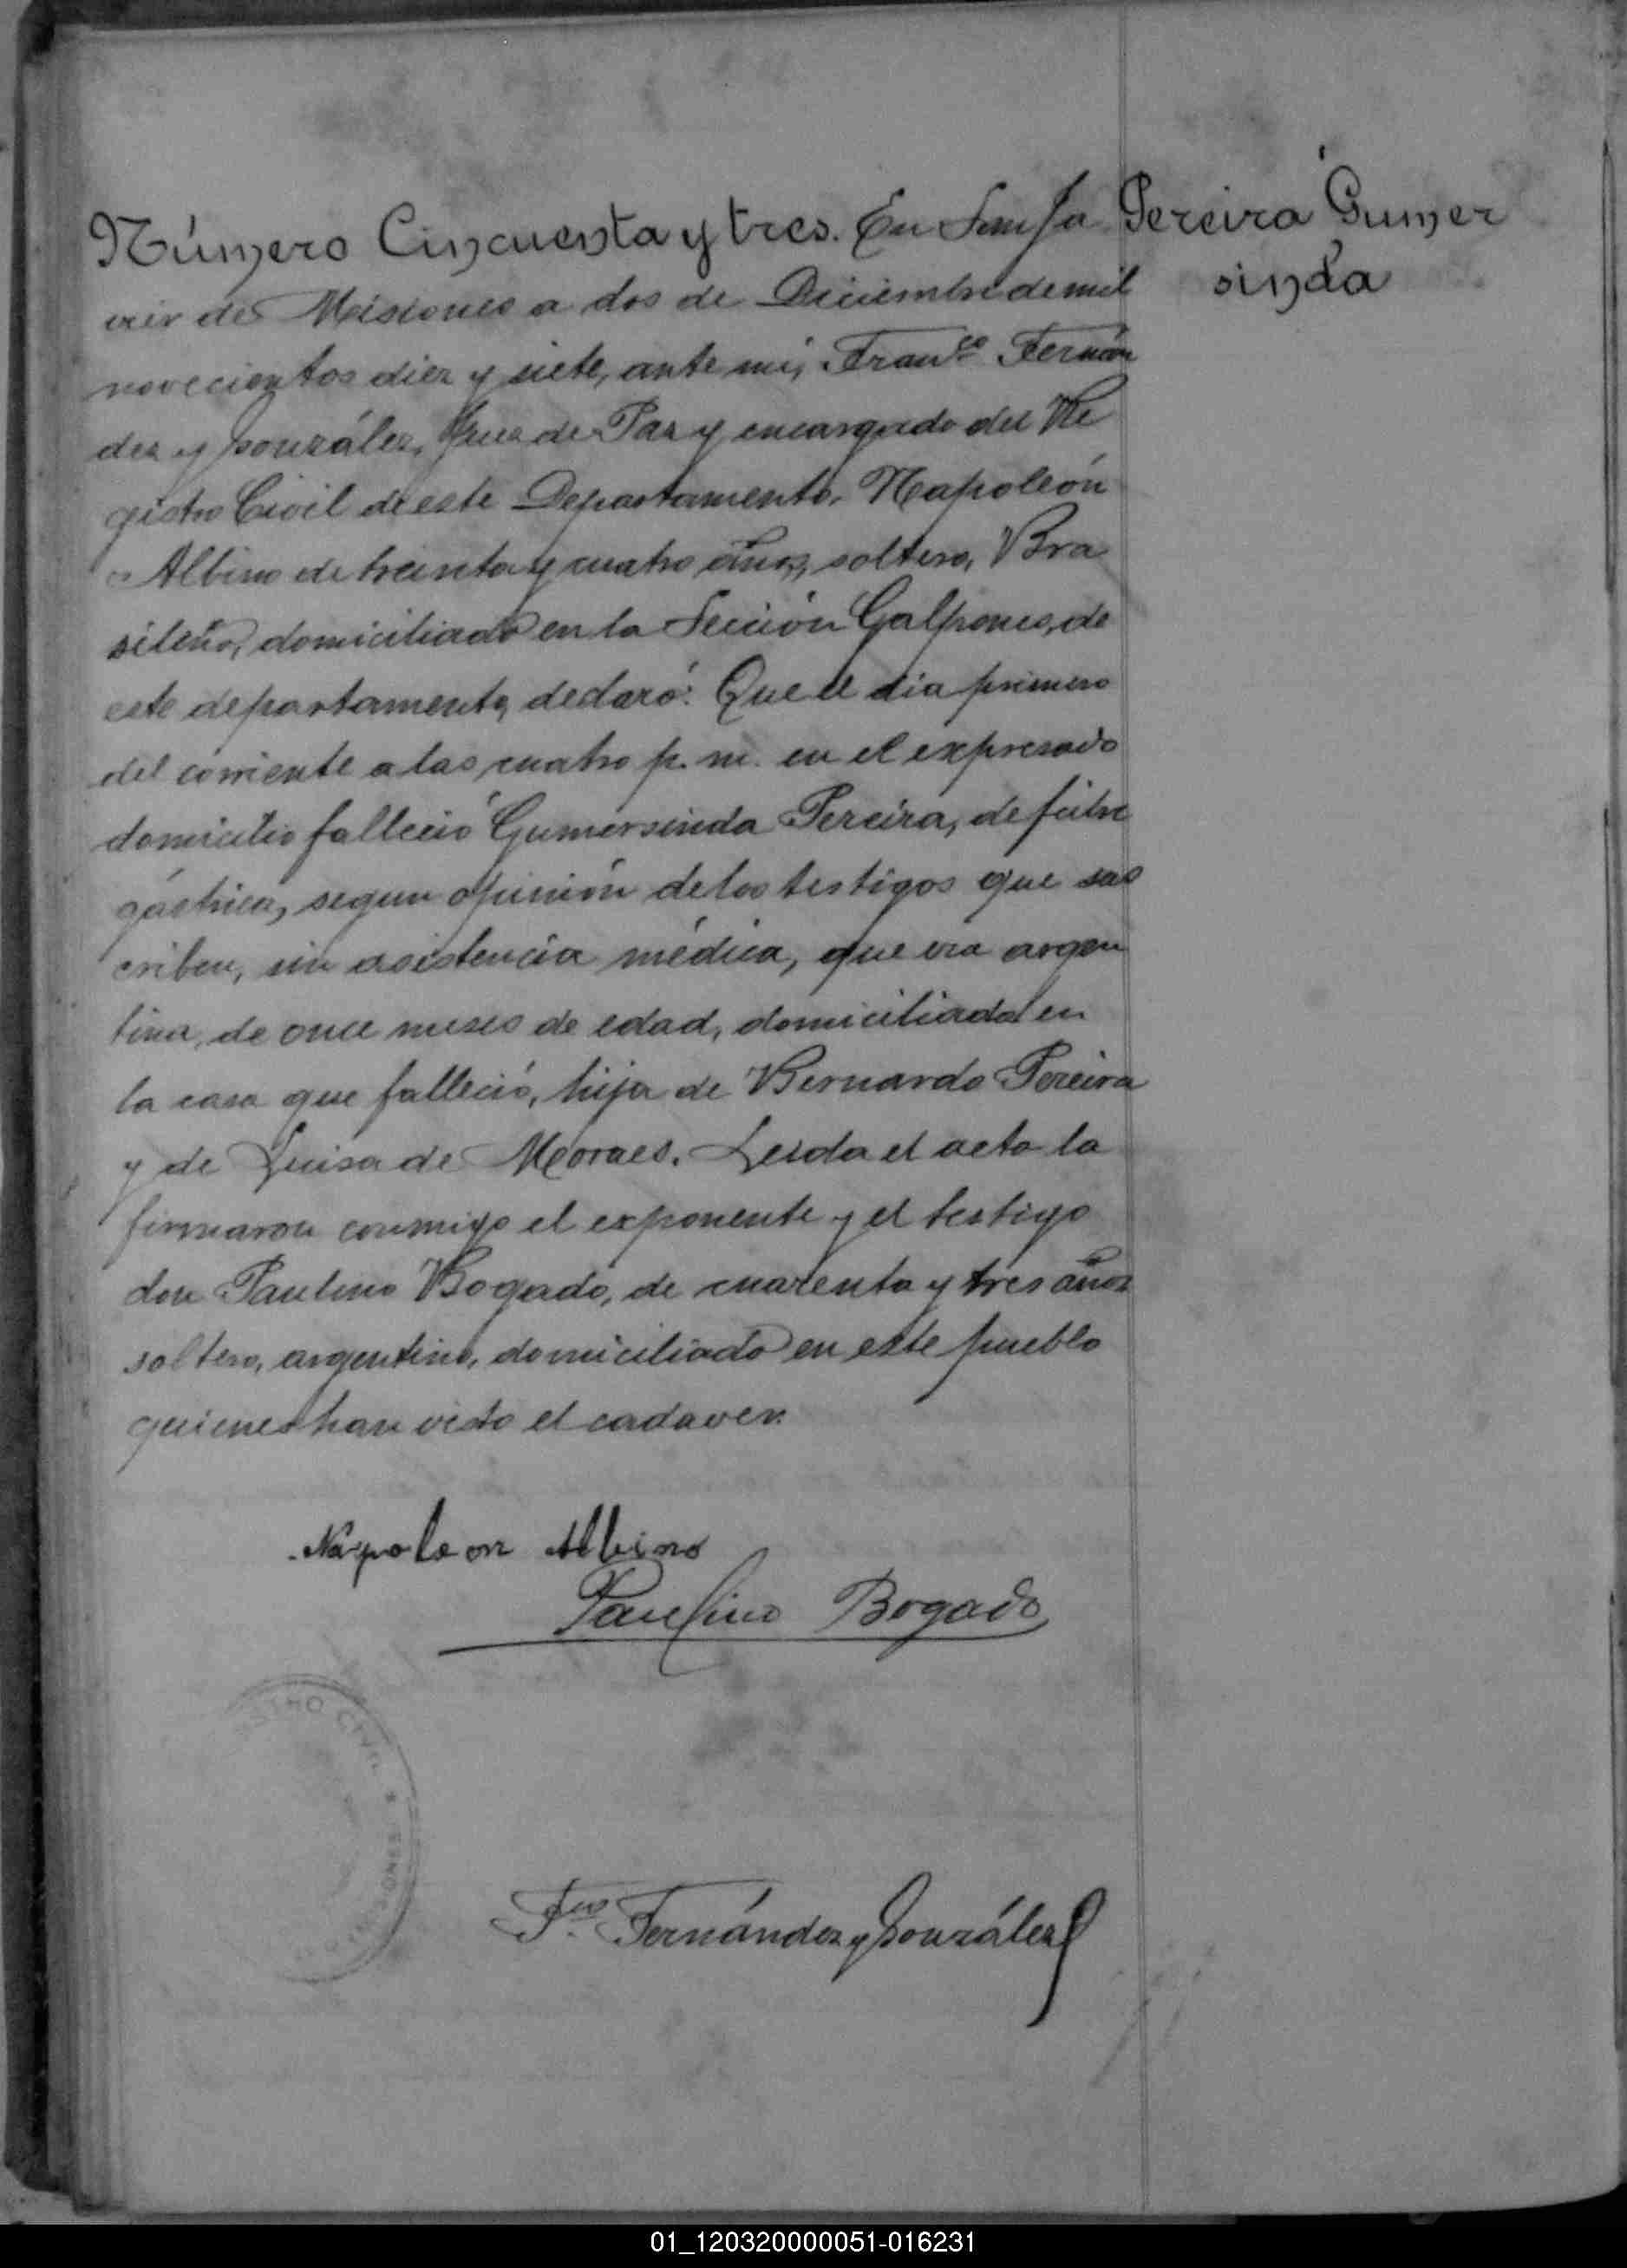 Número Cincuenta y tres. En San Ja
vier de Misiones a dos de Diciembre de mil
novecientos diez y siete, ante mí, Franco Fernán
dez y González, Juez de Paz y encargado del Re
gistro Civil de este Departamento, Napoleón
Albino de treinta y cuatro años, soltero, Bra
sileño, domiciliado en la Sección Galpones, de
este departamento, declaró: Que el día primero
del corriente a las cuatro p. m. en el expresado
domicilio falleció Gumersinda Pereira, de fiebre
gástrica, segun opinión de los testigos que sus
criben, sin asistencia médica, que era argen
tina, de once meses de edad, domiciliada en
la casa que falleció, hija de Bernardo Pereira
y de Luisa de Moraes. Leida el acta la
firmaron conmigo el exponente y el testigo
don Paulino Bogado, de cuarenta y tres años
soltero, argentino, domiciliado en este pueblo
quienes han visto el cadaver.
Pereira Gumer
sinda
Napoleon Albino
Paulino Bogado
STRO CIVIL
Fco Fernández y González
01_120320000051-016231